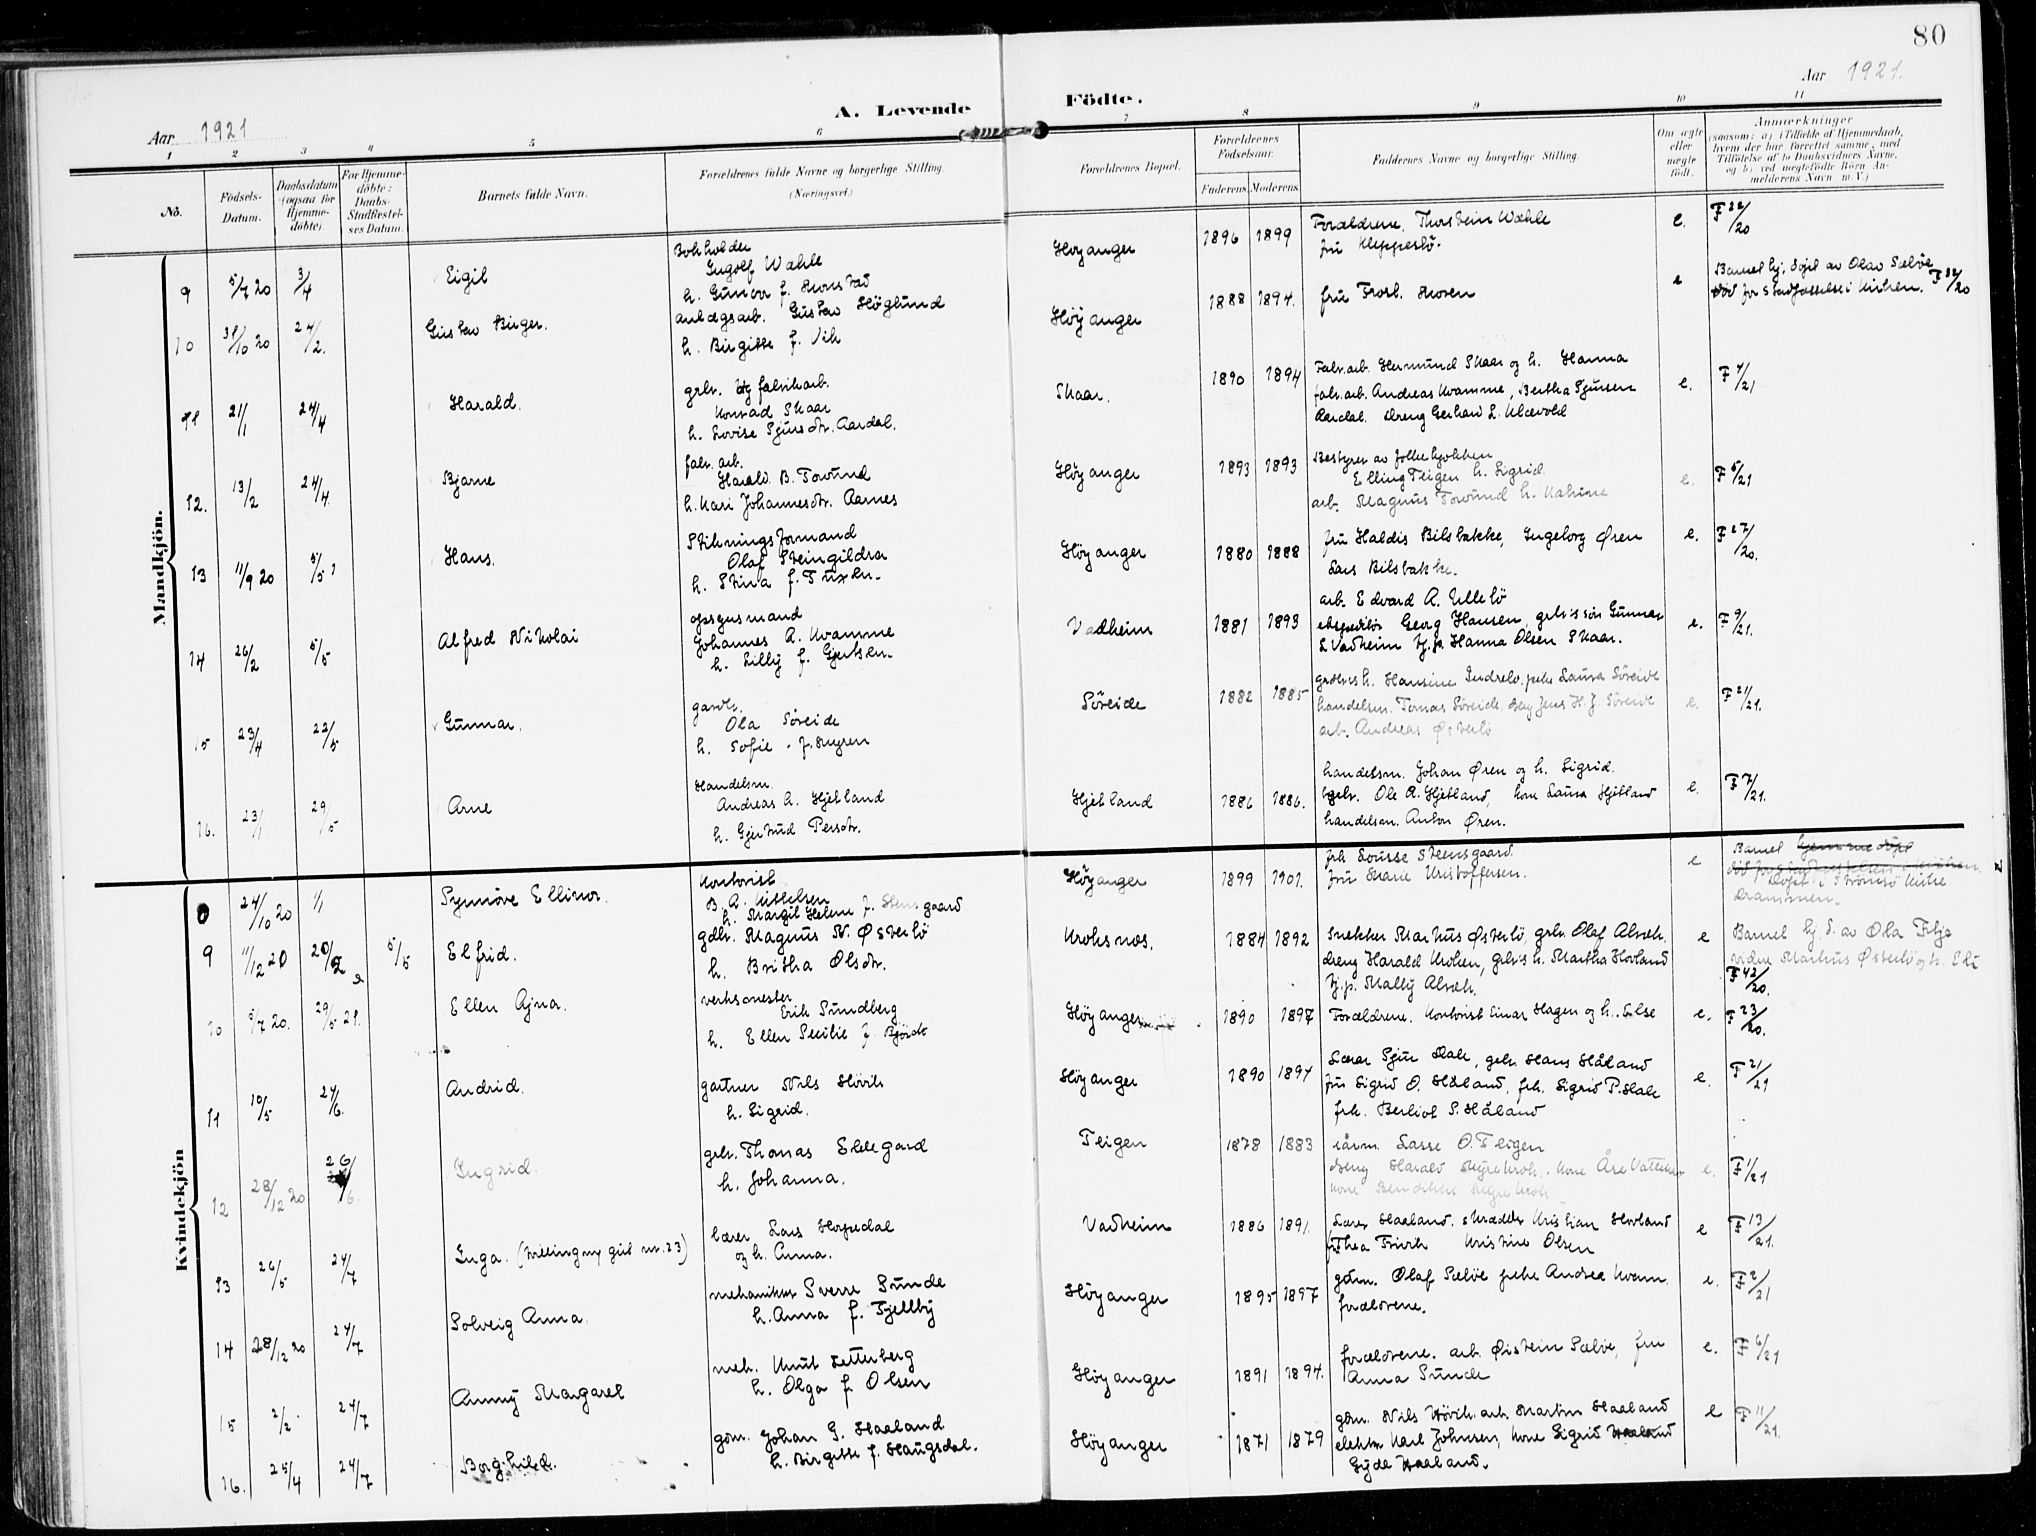 80
Aar 1921
Aar 1921.
A. Levende Födte.
1 2 3 4 5 6 7 8 9 10 11
No.
Födsels-Datum.
Daabsdatum (ogsaa for Hjemme-döbte).
For Hjemme-döbte: Daabs-Stadfæstel-ses Datum.
Barnets fulde Navn.
Forældrenes fulde Navne og borgerlige Stilling. (Næringsvei.)
Forældrenes Bopæl.
Forældrenes Födselsaar.
Faderens. Moderens.
Faddernes Navne og borgerlige Stilling.
Om ægte eller uægte födt.
Anmærkninger
(saasom: a) i Tilfælde af Hjemmedaab, hvem der har forrettet samme, med Tilföielse af to Daabsvidners Navne, og b) ved uægtefödte Börn An-melderens Navn m. V.)
Mandkjön.
9 5/7 20 3/4 Eigil
Bokholder
Ingolf Wahle
h. Gunvor f.
Høyanger 1896 1899
Forældrene. Thorstein Wahle
fru Kleppestø.
e. F 22/20
10 31/10 20 24/2. Gustav Birger.
anlegsarb. Gustav Høglund
h. Birgitte f. Vik
Höyanger 1888 1894.
fru Frost.
e Barnet hj. döpt av Olav Sæløe
död for stadfæstelse i kirken. F 32/20
11 21/1 24/4 Harald.
grbr. og fabrikarb.
Konrad Skaar
h. Lovise Sjursdtr. Aardal.
Skaar. 1890 1894
Fabr.arb. Hermund Skaar og h. Hanna
fabr.arb. Andreas Kvamme, Bertha Sjursen
Aardal. dreng Gerhard L.
e. F 4/21
12. 13/2 24/4. Bjarne
fabr. arb.
Harald B. Torvund
h. Kari Johannesdtr. Aarnes
Höyanger 1893 1893
Bestyrer av folkekjøkken
Elling Fleigen h. Sigrid
arb. Magnus Torvund h. Katrine
e. F 5/21
13 11/9 20 5/5 1 Hans.
Stikningsformand
Olaf Steingildra
h. Stina f. Tuxen.
Höyanger 1880 1888
fru Haldis Bilsbakke, Ingeborg Øren
Lars Bilsbakke.
e. F 27/20.
14 26/2 5/5 Alfred Nikolai
opsynsmand
Johannes A. Kvamme
h. Lilly f. Gjertsen.
Vadheim 1881 1893
arb. Edvard A. Ullebö
ekspeditör Georg Hansen, grbr.s sön Gunnar
L Vadheim tj.p. Hanna Olsen Skaar.
e. F 9/21.
15 23/4 22/5 Gunnar.
gardbr.
Ola Söreide
h. Sofie f. Myren
Söreide 1882 1885
h. Hansine Indrebö. Laura Söreide
handelsm. Tomas Söreide. H. J. Söreide
arb. Andreas Østerbö
e. F 21/21.
16. 23/1 29/5 Arne
Handelsm.
Andreas A. Hjetland
h. Gjertrud Persdtr.
Hjetland 1886 1886.
handelsm. Johan Øren og h. Sigrid.
grbr. Ole A. Hjetland, kone Laura Hjetland
handelsm. Anton Øren.
e. F 7/21.
Kvindekjön
24/10 20 1/1 Synnöve Ellinor.
Kontorist
B. A. Mikkelsen
h. Margit Helene f. Steensgaard
Höyanger 1899 1901.
frk Lousse Steensgaard.
fru Marie Kristoffersen.
e Barnet hjemmedöpt
Döpt i Strömsö kirke
Drammen.
9 11/12 20 20/2 5/5 Elfrid.
gdbr. Magnus N. Østerbö
h. Britha Olsdtr.
Kroksnes. 1884 1892
Snekker Markus Østerbö, grbr. Olaf Alræk.
dreng Harald Kroken, grbr.s h. Martha Hovland
tj.p. Mally Alræk.
e Barnet hj. d. av Ola
vidner Markus Østerbö og h. Eli
F 42/20.
10 5/7 20. 29/5 21. Ellen Ajna.
verksmester
Erik Sundberg
h. Ellen Secilie f.
Höyanger 1890 1897
Forældrene. Kontorist Einar Hagen og h. Else
e. F 23/20.
11 10/5 24/6. Andrid.
gartner Nils Hövik
h. Sigrid.
Höyanger 1890 1894
Lærer Sjur Hale, grbr. Hans Håland
fru Sigrid O. Håland. frk. Sigrid P. Hale
frk. Berliot S. Håland
e. F 21/21
12 28/12 20 26/6. Ingrid.
grbr. Thomas Ellegard
h. Johanna.
Fleigen 1878 1883
Lasse O. Fleigen
dreng Harald kone Åse
kone Bendikke
e. F 1/21
13 26/5 24/7 Inga. (tvilling m gut nr. 23)
lærer Lars Hopedal
og h. Anna.
Vadheim 1886 1891.
Lærer Haaland. skrædder Kristian Hovland
fru Thea Kristine Olsen
e F 13/21.
14 28/12 20 24/7 Solveig Anna.
mekaniker Sverre Sunde
h. Anna f. Fjellby
Höyanger 1895 1897
gdm. Olaf Sæløe pike Andrea Kvam.
forældrene.
e. F 2/21
15 2/2. 24/7 Anny Margaret
mek. Knut Zetterberg
h. Olga f. Olsen
Höyanger 1891 1894.
forældrene. arb. Øistein Sæløe, fru
Anna Sunde
e. F 6/21
16. 25/4 24/7 Borghild.
gdm. Johan G. Haaland
h. Birgitte f. Haugsdal.
Höyanger 1871 1879
gdm. Nils Hövik. arb. Martin Haaland
elektr. Karl Johnsen, kone Sigrid Haaland
Gyda Haaland.
e F 11/21.